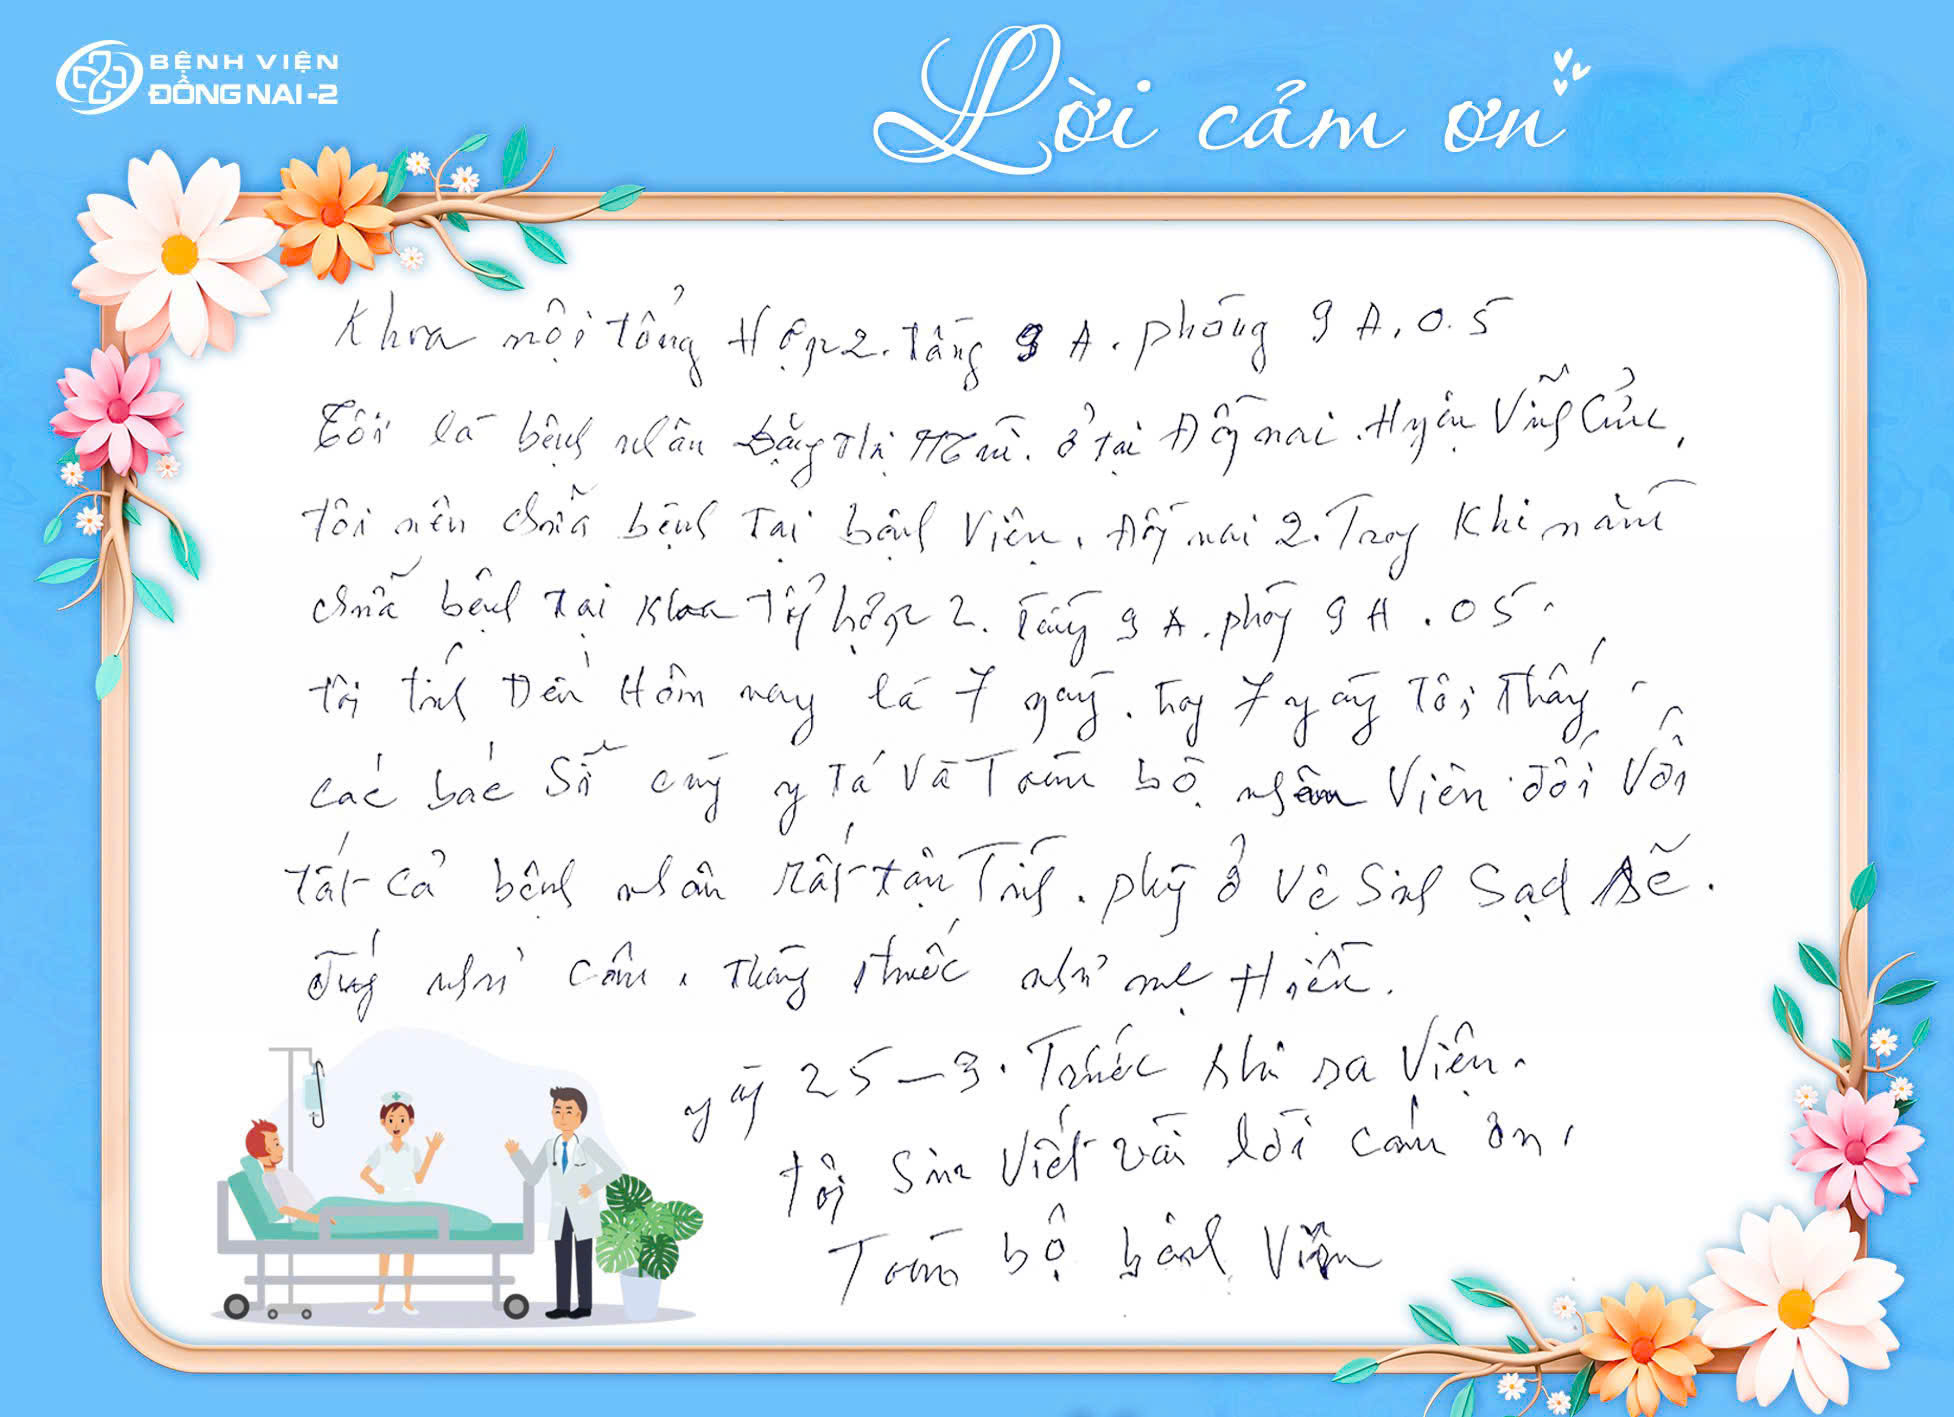 BỆNH VIỆN
ĐỒNG NAI-2
Lời cảm ơn
Khoa nội tổng Hợp 2. tầng 9 A. phòng 9 A. 0.5
Tôi là bệnh nhân Đặng Thị ở tại Đồng nai. Huyện Vĩnh Cửu,
tôi nên chữa bệnh Tại bệnh Viện. Đồng nai 2. Trong Khi nằm
chữa bệnh tại Khoa Tổng hợp 2. Tầng 9 A. phòng 9 A. 05.
tôi tính Đến Hôm nay là 7 ngày. Trong 7 ngày Tôi Thấy
các bác Sĩ cùng y tá Và Toàn bộ nhân Viên đối Với
tất cả bệnh nhân rất tận Tình. phòng ở Vệ Sinh Sạch sẽ.
đúng như câu. Thầy thuốc như mẹ Hiền.
ngày 25-3. Trước khi ra Viện.
tôi Xin Viết vài lời cám ơn.
Toàn bộ bệnh Viện